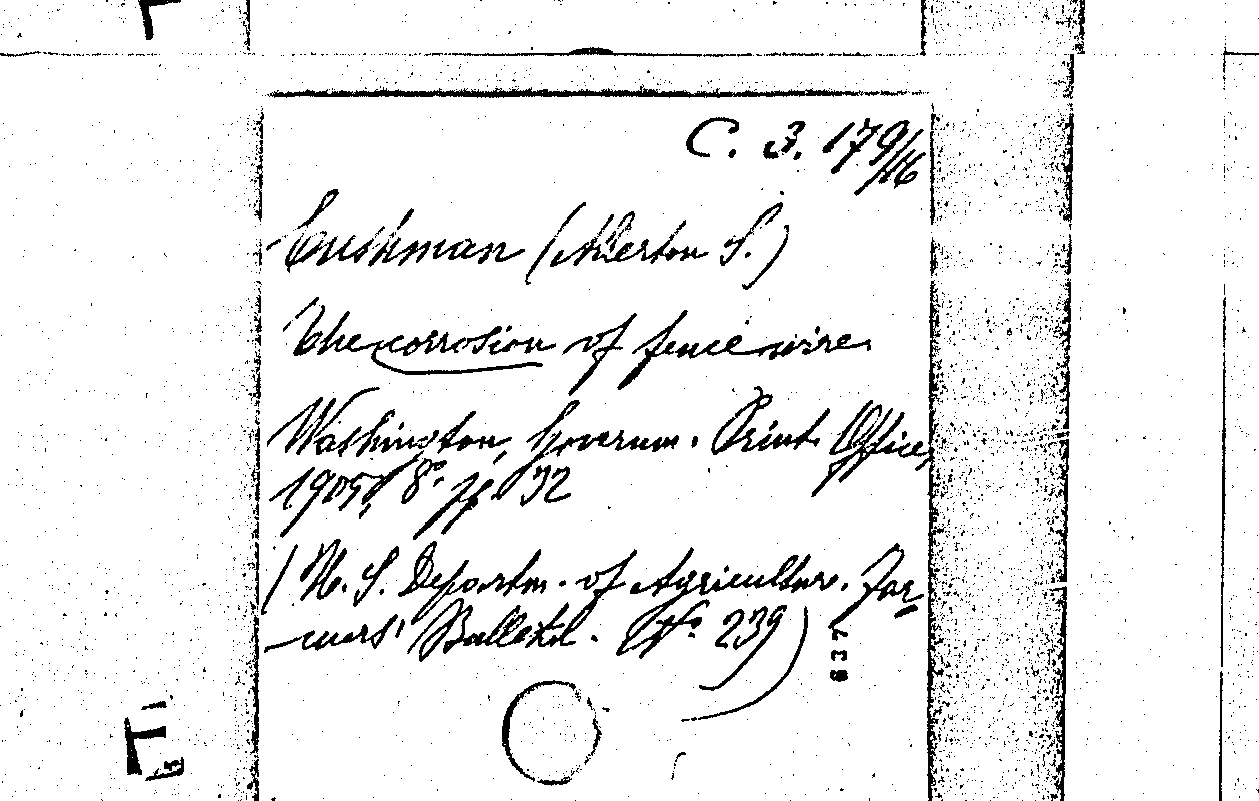 C. 3. 179/16
Cushman (Allerton S.)
The corrosion of fence wire.
Washington, Governm. Print. Office,
1905, 8º. pp. 32
(U. S. Departm. of Agriculture. Far-
mers' Bulletin. Nº 239)
637